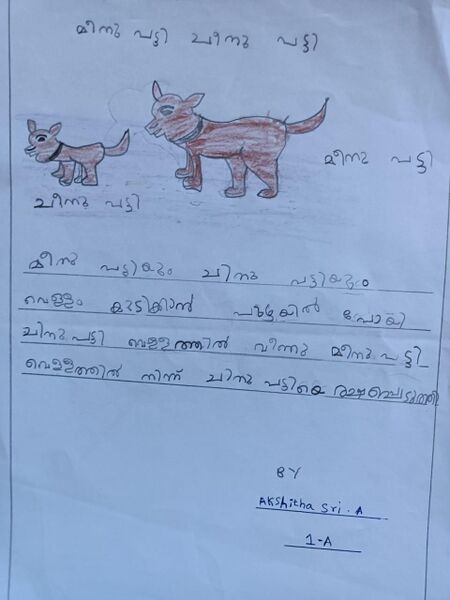 മീനു പട്ടി ചീനു പട്ടി
മീനു പട്ടി
ചീനു പട്ടി
മീനു പട്ടിയും ചിനു പട്ടിയും
വെള്ളം കുടിക്കാൻ പുഴയിൽ പോയി
ചിനു പട്ടി വെള്ളത്തിൽ വീണു മീനു പട്ടി
വെള്ളത്തിൽ നിന്ന് ചിനു പട്ടിയെ രക്ഷപ്പെടുത്തി
BY
Akshitha Sri . A
1-A